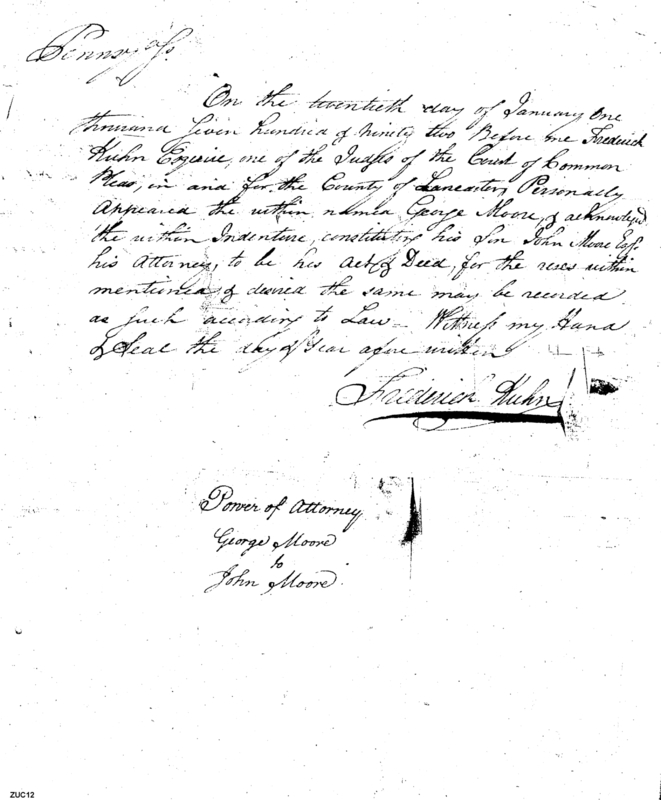 Pennsyᵃ ss
On the twentieth day of January One
thousand Seven hundred & Ninety two Before me Frederick
Kuhn Esquire, one of the Judges of the Court of Common
Pleas, in and for the County of Lancaster, Personally
Appeared the within named George Moore, & acknowledged
the within Indenture, constituting his Son John Moore Esqr
his Attorney, to be his Act & Deed, for the uses within
mentioned & desired the same may be recorded
as such according to Law – Witness my Hand
& Seal the day & Year afore written
Frederick Kuhn
Power of Attorney
George Moore
to
John Moore
ZUC12